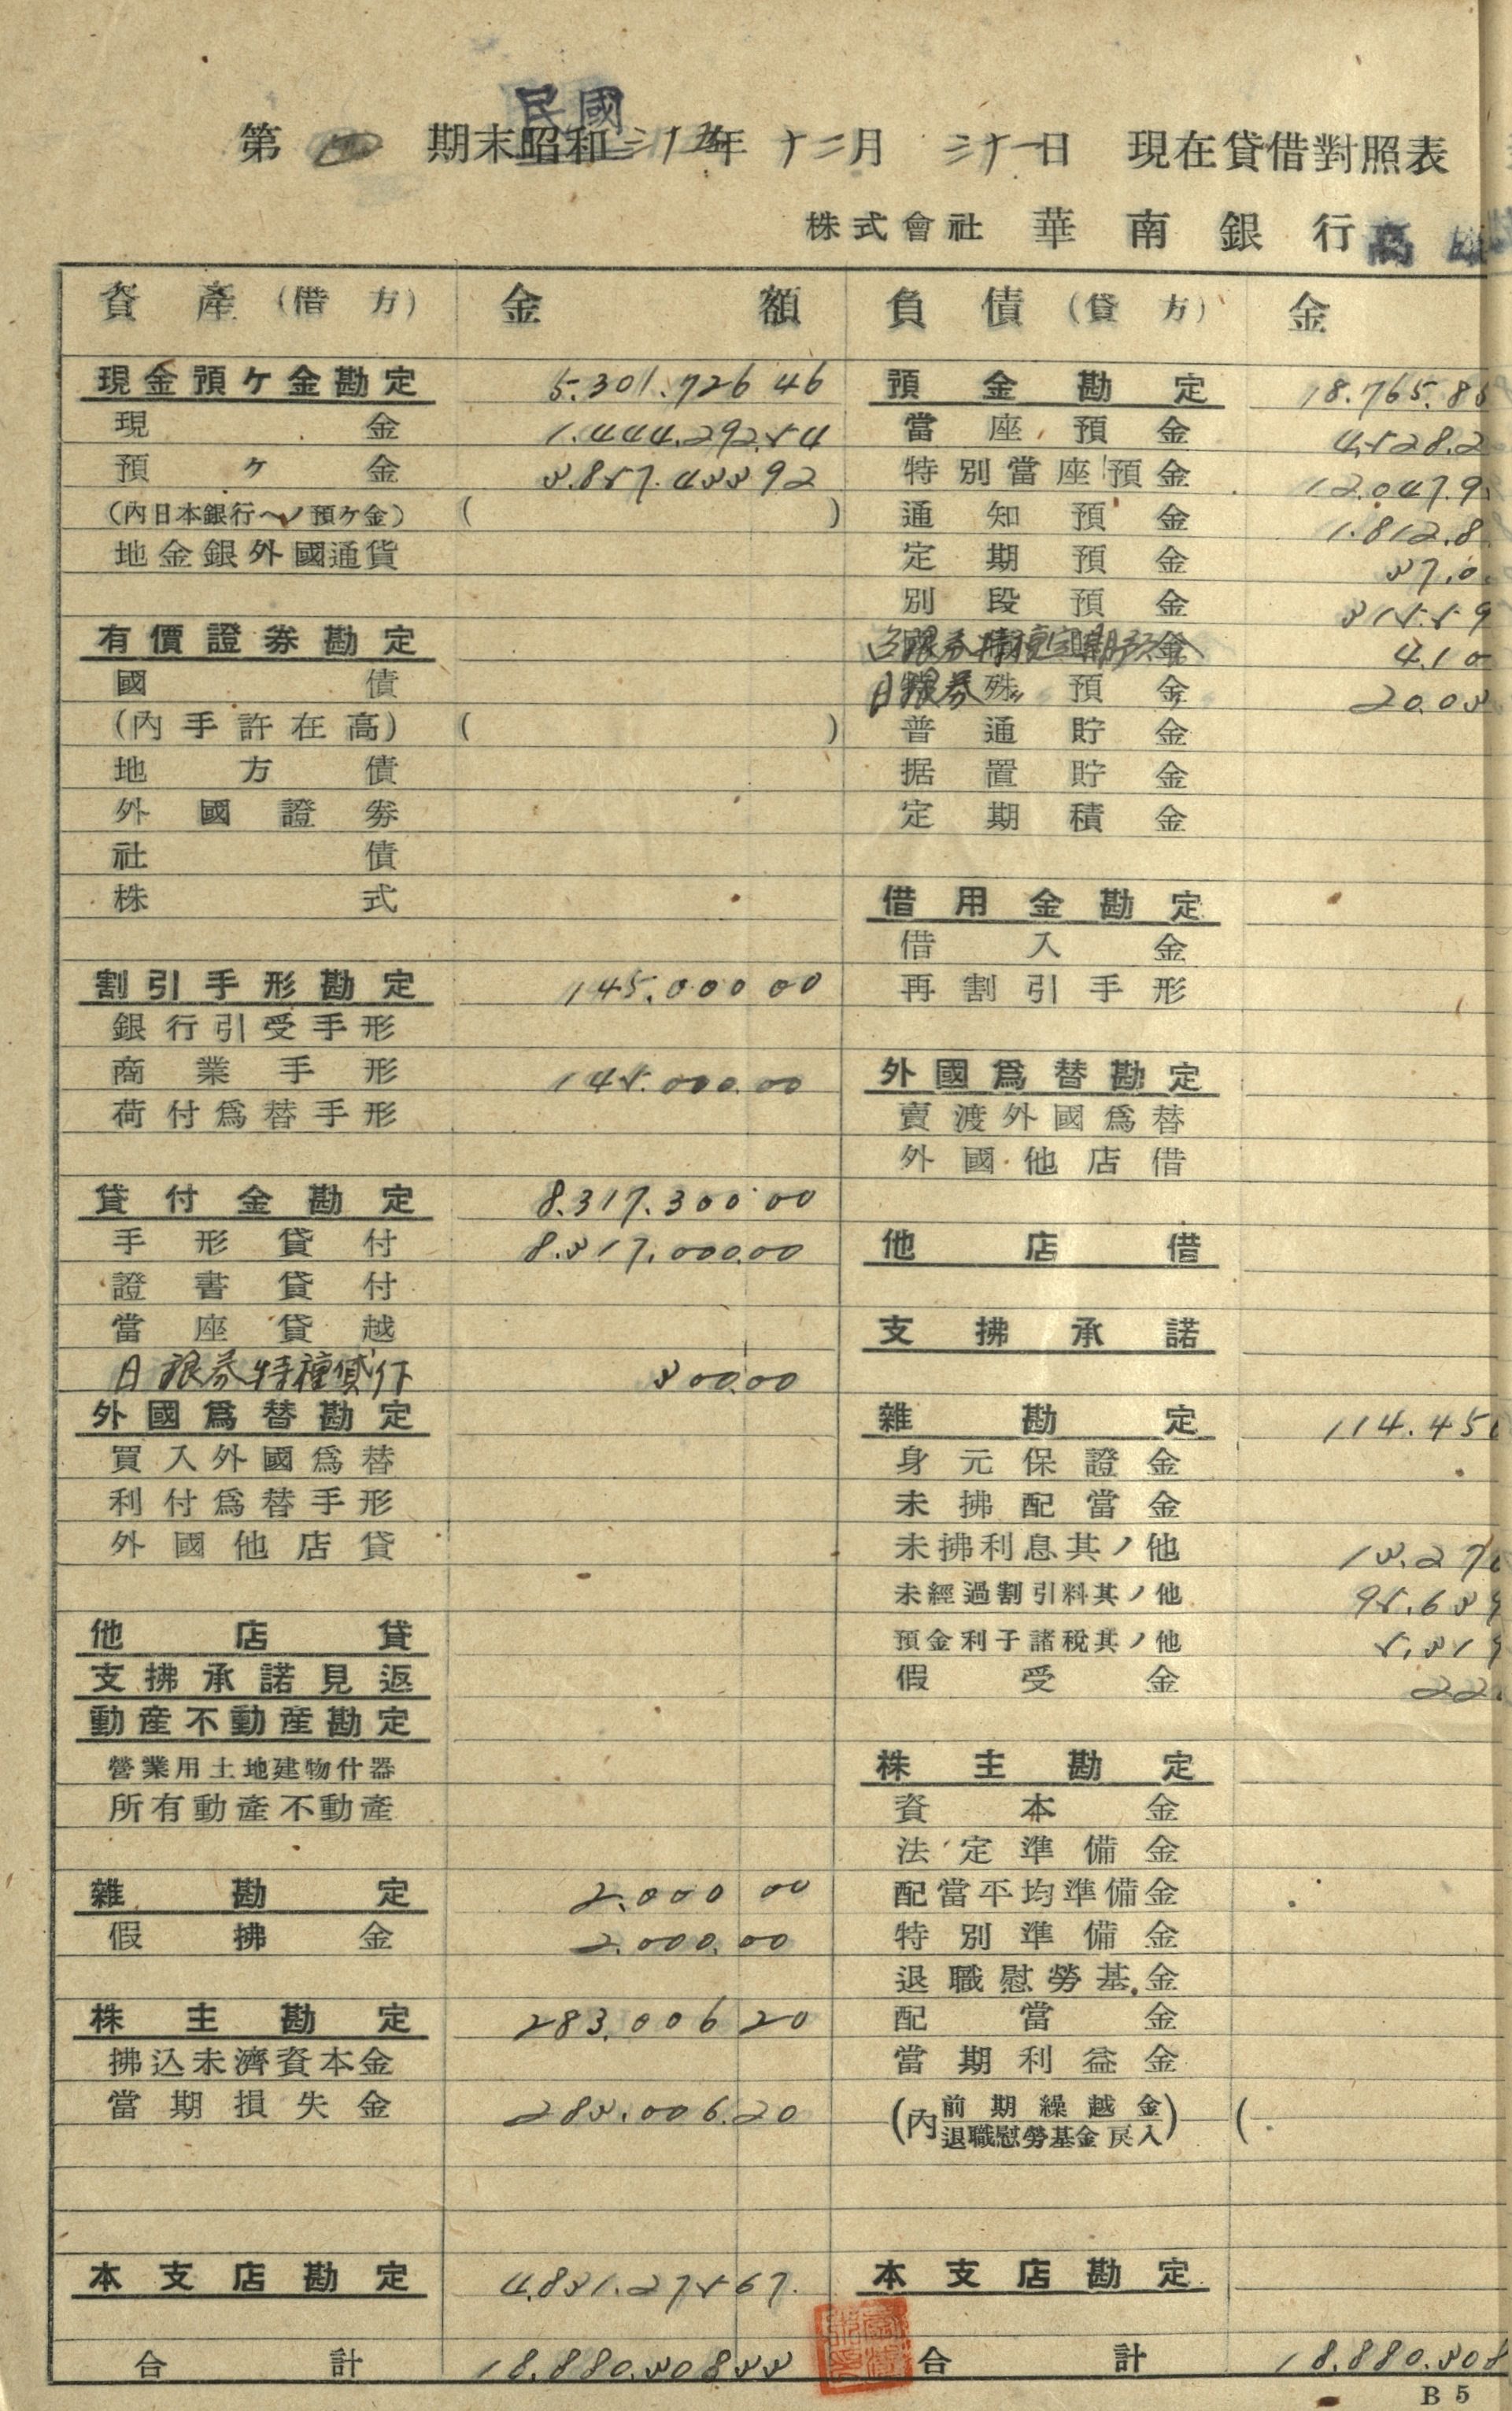 民國
第 期末昭和三十五年十二月三十一日 現在貸借對照表
株式會社 華南銀行高雄
資產(借方) 金額 負債(貸方) 金
現金預ケ金勘定 5.301.726 46 預金勘定 18.765.85
現金 1.444.292.54 當座預金 4.528.2
預ケ金 3.857.433 92 特別當座預金 12.047.9
(內日本銀行ヘノ預ケ金) ( ) 通知預金 1.812.8
地金銀外國通貨 定期預金 37.0
別段預金 315.59
有價證券勘定 日銀券特種定期預金 4.10
國債 日銀券特殊預金 20.03
(內手許在高) ( ) 普通貯金
地方債 据置貯金
外國證券 定期積金
社債
株式 借用金勘定
借入金
割引手形勘定 145.000 00 再割引手形
銀行引受手形
商業手形 145.000.00 外國爲替勘定
荷付爲替手形 賣渡外國爲替
外國他店借
貸付金勘定 8.317.300 00
手形貸付 8.317.000.00 他店借
證書貸付
當座貸越 支拂承諾
日銀券特種貸付 300.00
外國爲替勘定 雜勘定 114.45
買入外國爲替 身元保證金
利付爲替手形 未拂配當金
外國他店貸 未拂利息其ノ他 13.27
未經過割引料其ノ他 95.63
他店貸 預金利子諸稅其ノ他 5.31
支拂承諾見返 假受金 22.
動產不動產勘定
營業用土地建物什器 株主勘定
所有動產不動產 資本金
法定準備金
雜勘定 2.000 00 配當平均準備金
假拂金 2.000.00 特別準備金
退職慰勞基金
株主勘定 283.006 20 配當金
拂込未濟資本金 當期利益金
當期損失金 283.006.20 (內 前期繰越金 退職慰勞基金戾入) (
本支店勘定 4.831.275 67. 本支店勘定
合計 18.880.308 33 合計 18.880.308
B 5